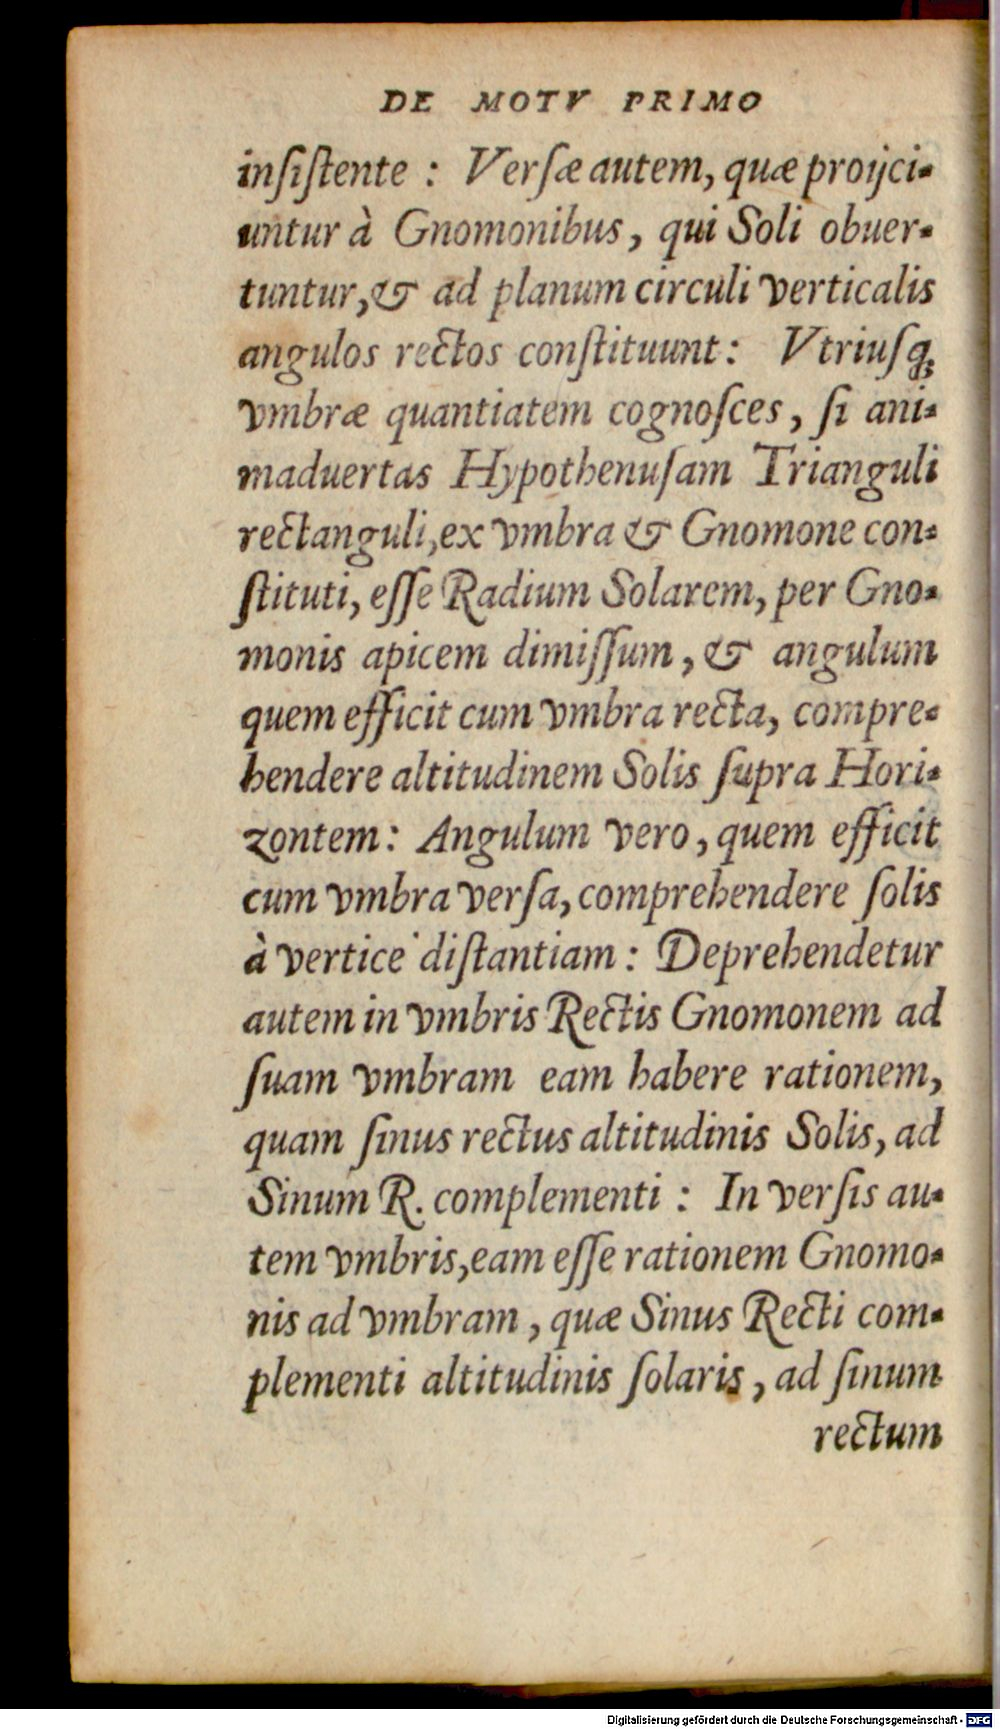 DE MOTV PRIMO
inſiſtente : Verſæ autem, quæ proijci-
untur à Gnomonibus, qui Soli obuer-
tuntur, & ad planum circuli verticalis
angulos rectos conſtituunt : Vtriuſq;
vmbræ quantiatem cognoſces, ſi ani-
maduertas Hypothenuſam Trianguli
rectanguli, ex vmbra & Gnomone con-
ſtituti, eſſe Radium Solarem, per Gno-
monis apicem dimiſſum, & angulum
quem efficit cum vmbra recta, compre-
hendere altitudinem Solis ſupra Hori-
zontem : Angulum vero, quem efficit
cum vmbra verſa, comprehendere ſolis
à vertice diſtantiam : Deprehendetur
autem in vmbris Rectis Gnomonem ad
ſuam vmbram eam habere rationem,
quam ſinus rectus altitudinis Solis, ad
Sinum R. complementi : In verſis au-
tem vmbris, eam eſſe rationem Gnomo-
nis ad vmbram, quæ Sinus Recti com-
plementi altitudinis ſolaris, ad ſinum
rectum
Digitalisierung gefördert durch die Deutsche Forschungsgemeinschaft - DFG